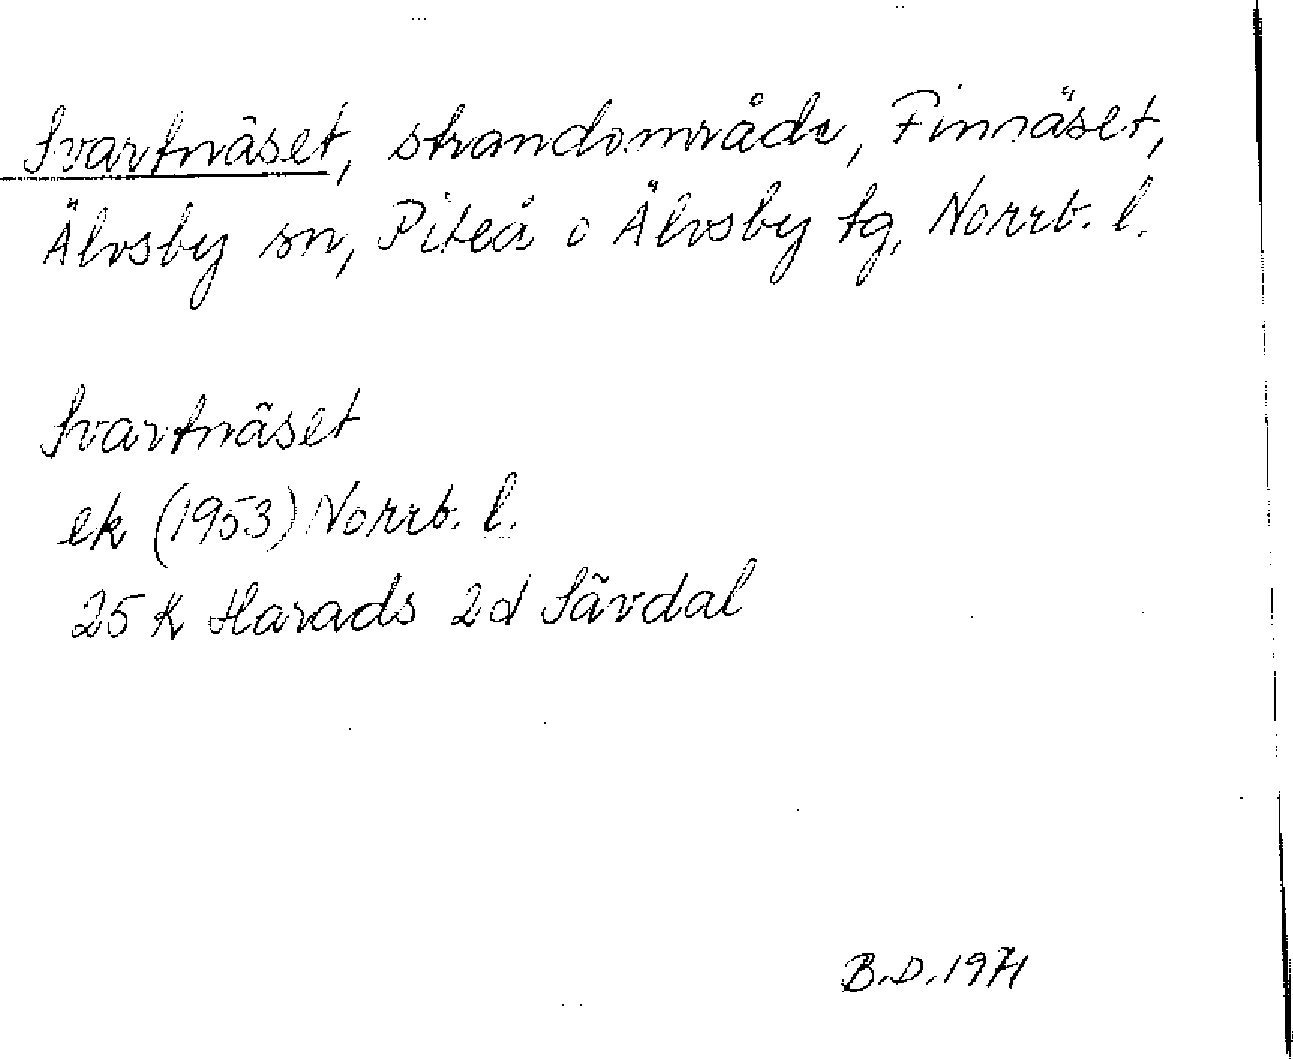 Svartnäset, strandområde, Finnäset,
Älvsby sn, Piteå o Älvsby tg, Norrb. l.
Svartnäset
ek (1953) Norrb. l.
25 K Harads 2d Sävdal
B.D. 1971